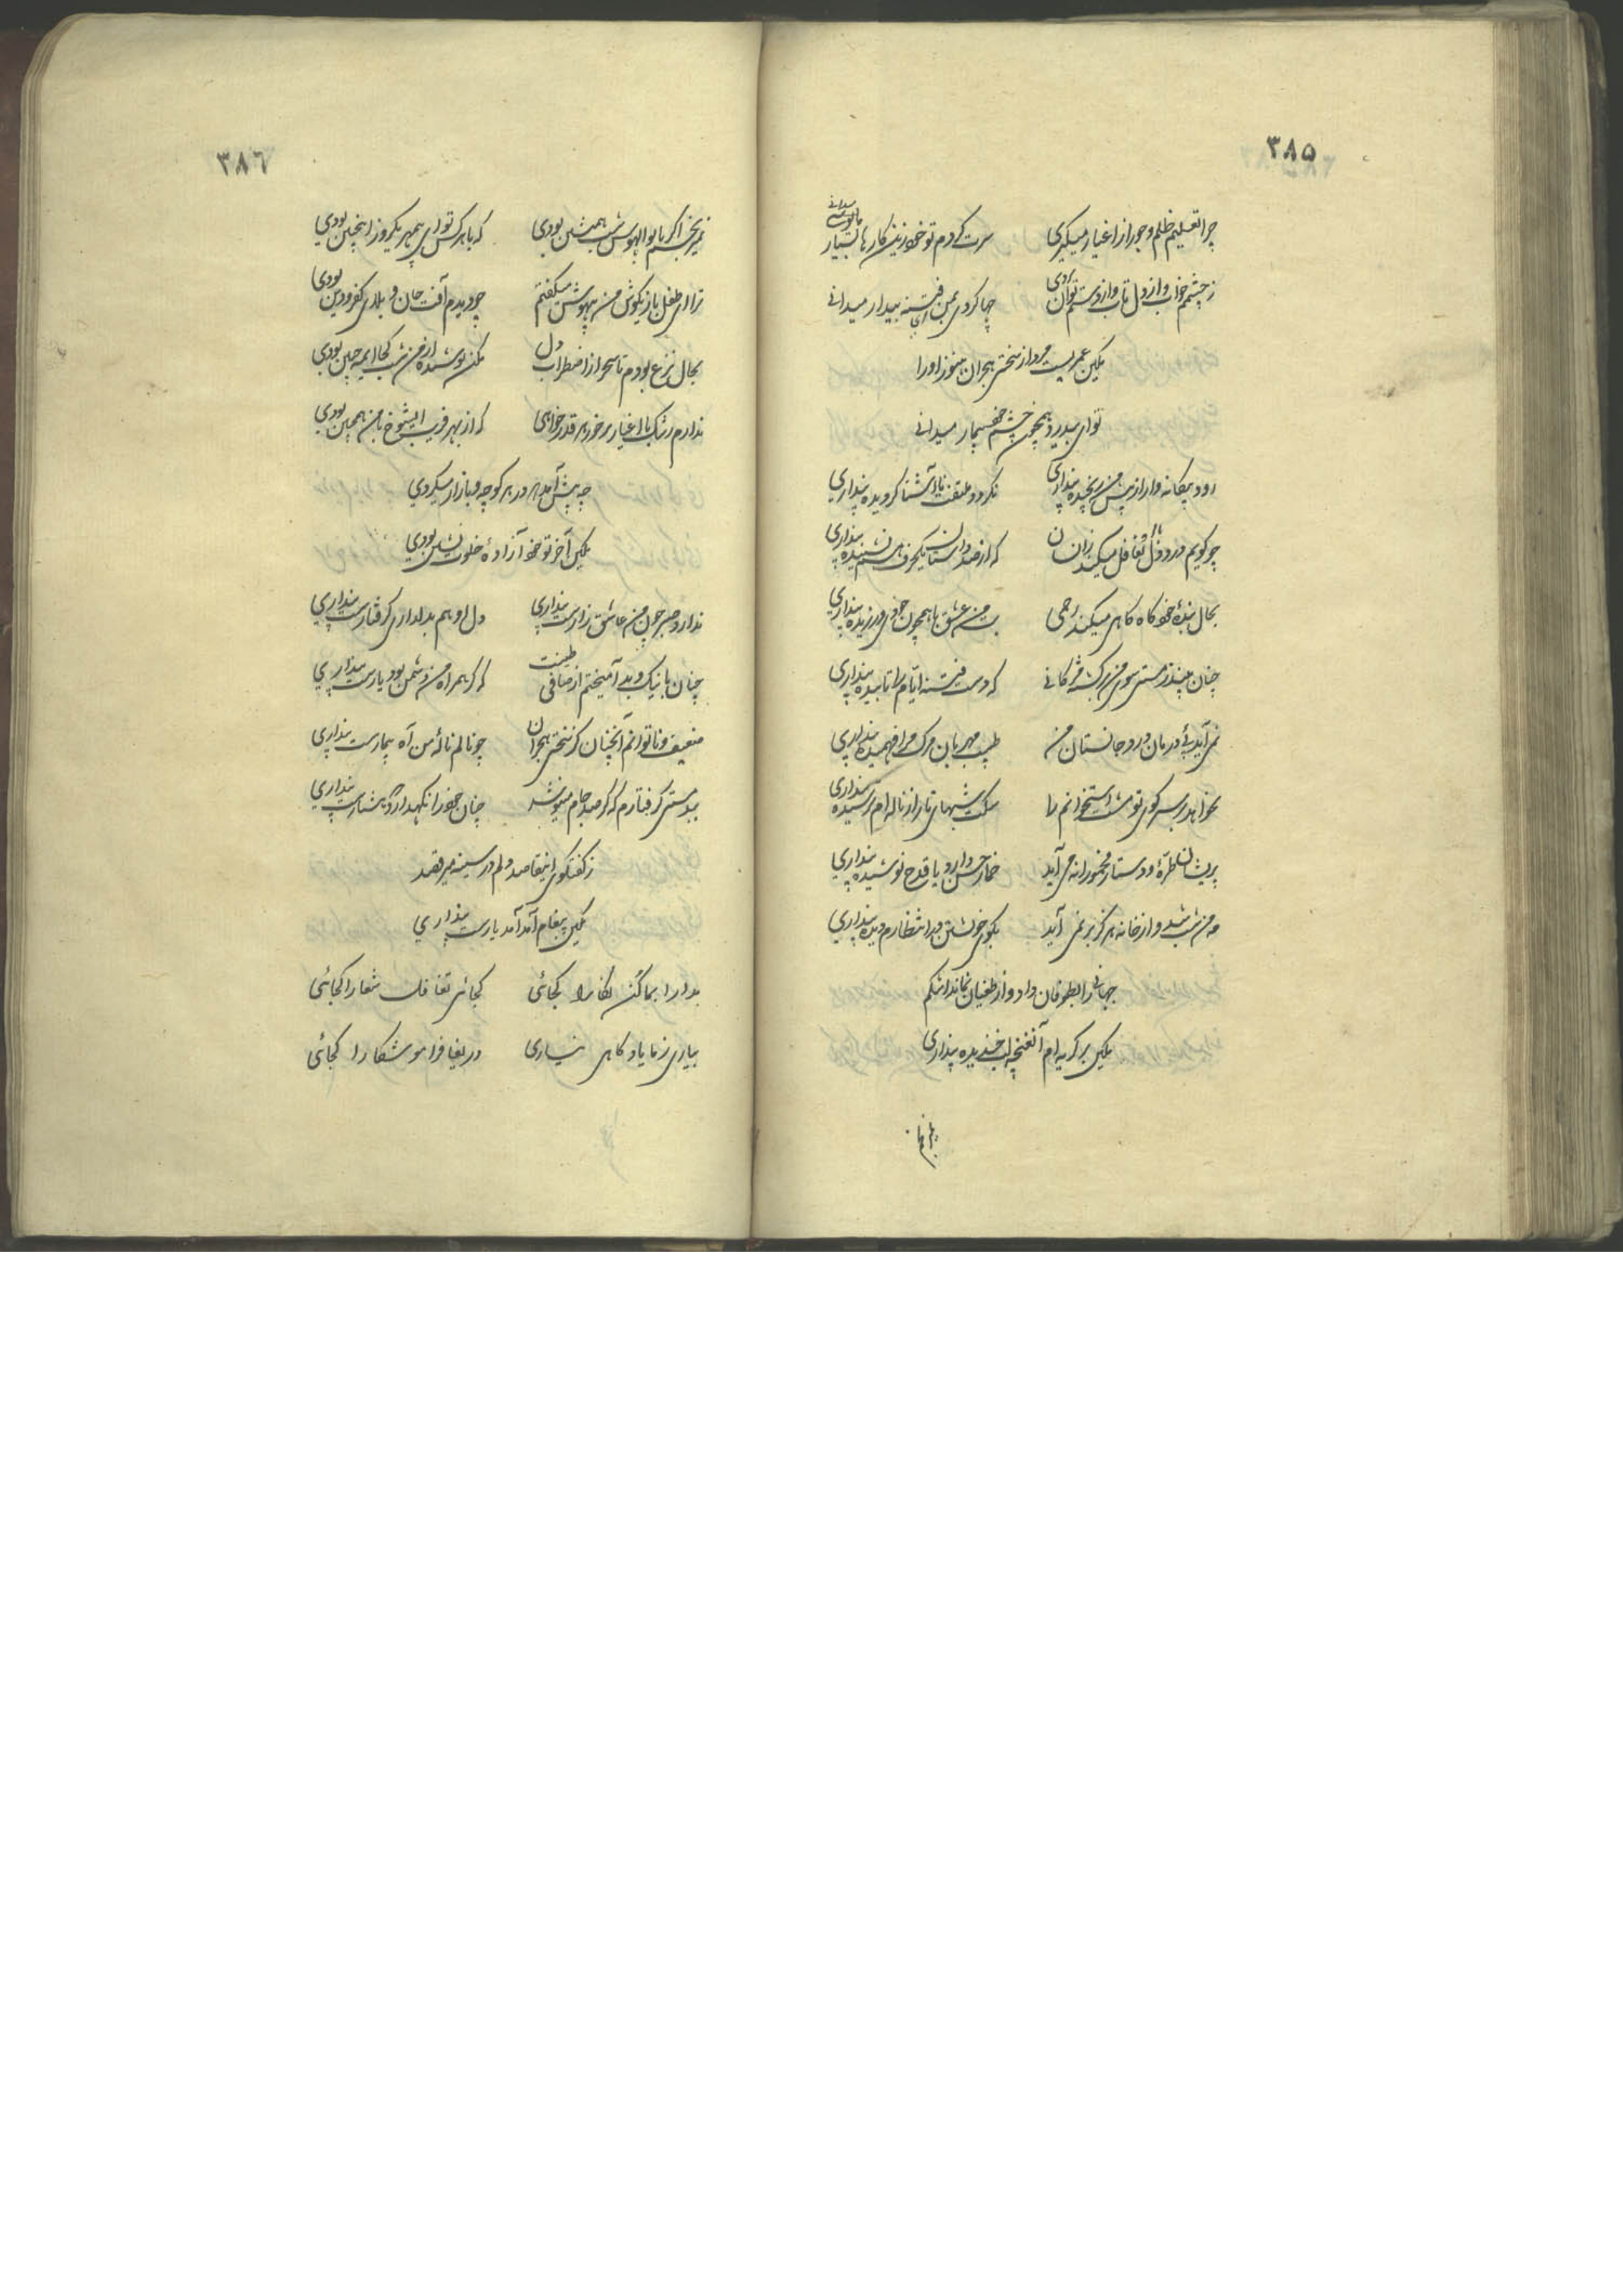 ٣٨٥
چرا تعلیم ظلم و جور از اغیار میگیری سرت گردم تو خود زین کارها بسیار میدانی
ز چشمم خواب و از دل تاب و از دستم توان بردی چها کردی بمن ای فتنه بیدار میدانی
مکین عمریست مرد از سختی هجران هنوز او را
توای بیدرد همچون چشم خود بیمار میدانی
رود بیگانه وار از پیش من رنجیده پنداری نگردد ملتفت با آشنا گردیده پنداری
چو گویم درد دل تغافل میکند زانسان که از صد داستان یکحرف هم نشنیده پنداری
بحال بنده خود گاه گاهی میکند رحمی بت من عشق با همچون خودی ورزیده پنداری
چنان بیند ز مستی سوی من برگشته مژگانی که دست فتنه ایام را تابیده پنداری
نمی آید پی درمان درد جانستان من طبیب مهربان مرگ مرا فهمیده پنداری
نخواهد بر سر کوی تو مشت استخوانم را سگت شبهای تار از ناله ام ترسیده پنداری
پریشان طره و دستار مخمورانه می آید خمار حسن دارد یا قدح نوشیده پنداری
مه من شب شد و از خانه هرگز بر نمی آید بکوی خویشتن در انتظارم دیده پنداری
جهانی را بطوفان داد و از طغیان نماند اشکم
مکین بر گریه ام آنغنچه لب خندیده پنداری
٣٨٦
نمیرنجم اگر با بوالهوس شب همنشین بودی که با هر کس تو ای بیمهر یکروز اینچنین بودی
ترا ای طفل بازیگوش من بیهوش میگفتم چو دیدم آفت جان و بلای کفر و دین بودی
بحال نزع بودم تا سحر از اضطراب دل مکن پوشیده از من شب کجا ایمه جبین بودی
ندارم رشک با اغیار بر خور هر قدر خواهی که از بهر فریب ایشوخ با من همچنین بودی
چه پیش آمد که در هر کوچه و بازار میگردی
مکین آخر تو خود آزاده خلوت نشین بودی
ندارد صبر چون من عاشق زارست پنداری دل او هم بدلداری گرفتارست پنداری
چنان با نیک و بد آمیختم از صافی طینت که گر همراه من دشمن بود یارست پنداری
ضعیف و ناتوانم آنچنان کز سختی هجران چو نالم ناله من آه بیمارست پنداری
ببد مستی گرفتارم که گر صد جام مینوشد چنان خود را نگهدارد که هشیارست پنداری
ز گفتگوی اینقاصد دلم در سینه میرقصد
مکین پیغام آمد آمد یارست پنداری
مدارا بما کن نگارا کجائی کجائی تغافل شعارا کجائی
بیاری ز ما یاد گاهی نیاری دریغا فراموشکارا کجائی